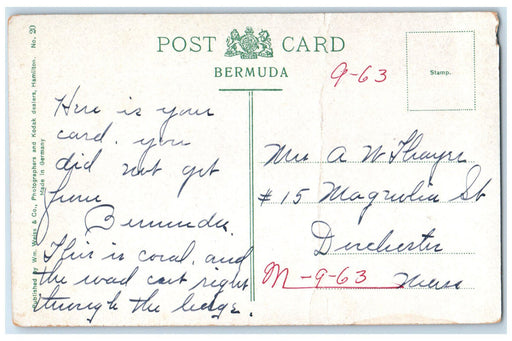 POST CARD
BERMUDA
9-63
Stamp.
No. 20
Published by Wm. Weiss & Co., Photographers and Kodak dealers, Hamilton.
Made in Germany
Here is your
card. you
did not get
from
Bermuda.
This is coral, and
the road cut right
through the
Mrs A W Thayer
#15 Magnolia St
Dorchester
M-9-63 Mass